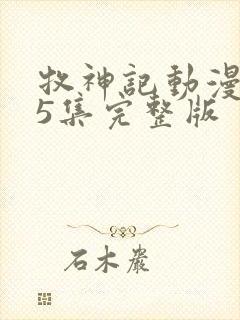 牧神記動漫
5集完整版
石木巖